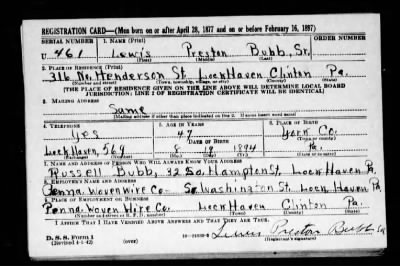 REGISTRATION CARD—(Men born on or after April 28, 1877 and on or before February 16, 1897)
SERIAL NUMBER 1. NAME (Print) ORDER NUMBER
U 461 Lewis Preston Bubb, Sr.
(First) (Middle) (Last)
2. PLACE OF RESIDENCE (Print)
316 No. Henderson St. Lock Haven Clinton Pa.
(Number and street) (Town, township, village, or city) (County) (State)
[THE PLACE OF RESIDENCE GIVEN ON THE LINE ABOVE WILL DETERMINE LOCAL BOARD
JURISDICTION; LINE 2 OF REGISTRATION CERTIFICATE WILL BE IDENTICAL]
3. MAILING ADDRESS
Same
[Mailing address if other than place indicated on line 2. If same insert word same]
4. TELEPHONE 5. AGE IN YEARS 6. PLACE OF BIRTH
yes 47 York Co.
DATE OF BIRTH
Lock Haven, 569 8 19 1894 Pa.
(Exchange) (Number) (Mo.) (Day) (Yr.) (State or country)
7. NAME AND ADDRESS OF PERSON WHO WILL ALWAYS KNOW YOUR ADDRESS
Russell Bubb, 32 So. Hampton St. Lock Haven Pa.
8. EMPLOYER'S NAME AND ADDRESS
Penna. Woven Wire Co- So. Washington St. Lock Haven Pa
9. PLACE OF EMPLOYMENT OR BUSINESS
Penna. Woven Wire Co Lock Haven Clinton Pa.
(Number and street or R. F. D. number) (Town) (County) (State)
I AFFIRM THAT I HAVE VERIFIED ABOVE ANSWERS AND THAT THEY ARE TRUE.
D. S. S. Form 1
(Revised 4-1-42) (over) Lewis Preston Bubb Sr
(Registrant's signature)